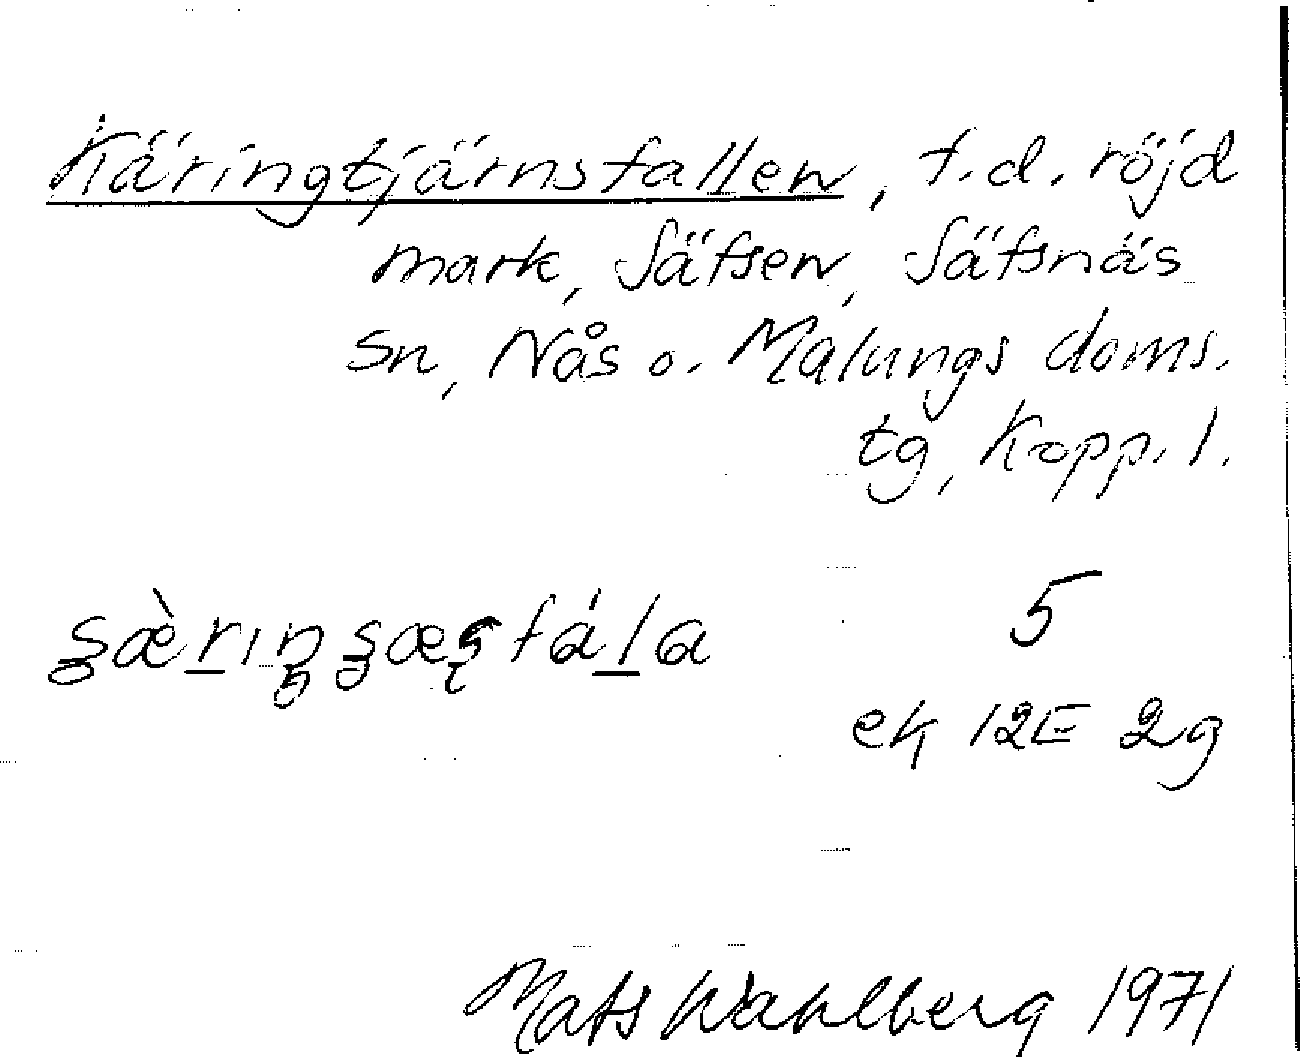 Käringtjärnsfallen, f.d. röjd
mark, Säfsen, Säfsnäs
sn, Nås o. Malungs doms.
tg, Kopp. l.
5
ek 12E 2g
Mats Wahlberg 1971